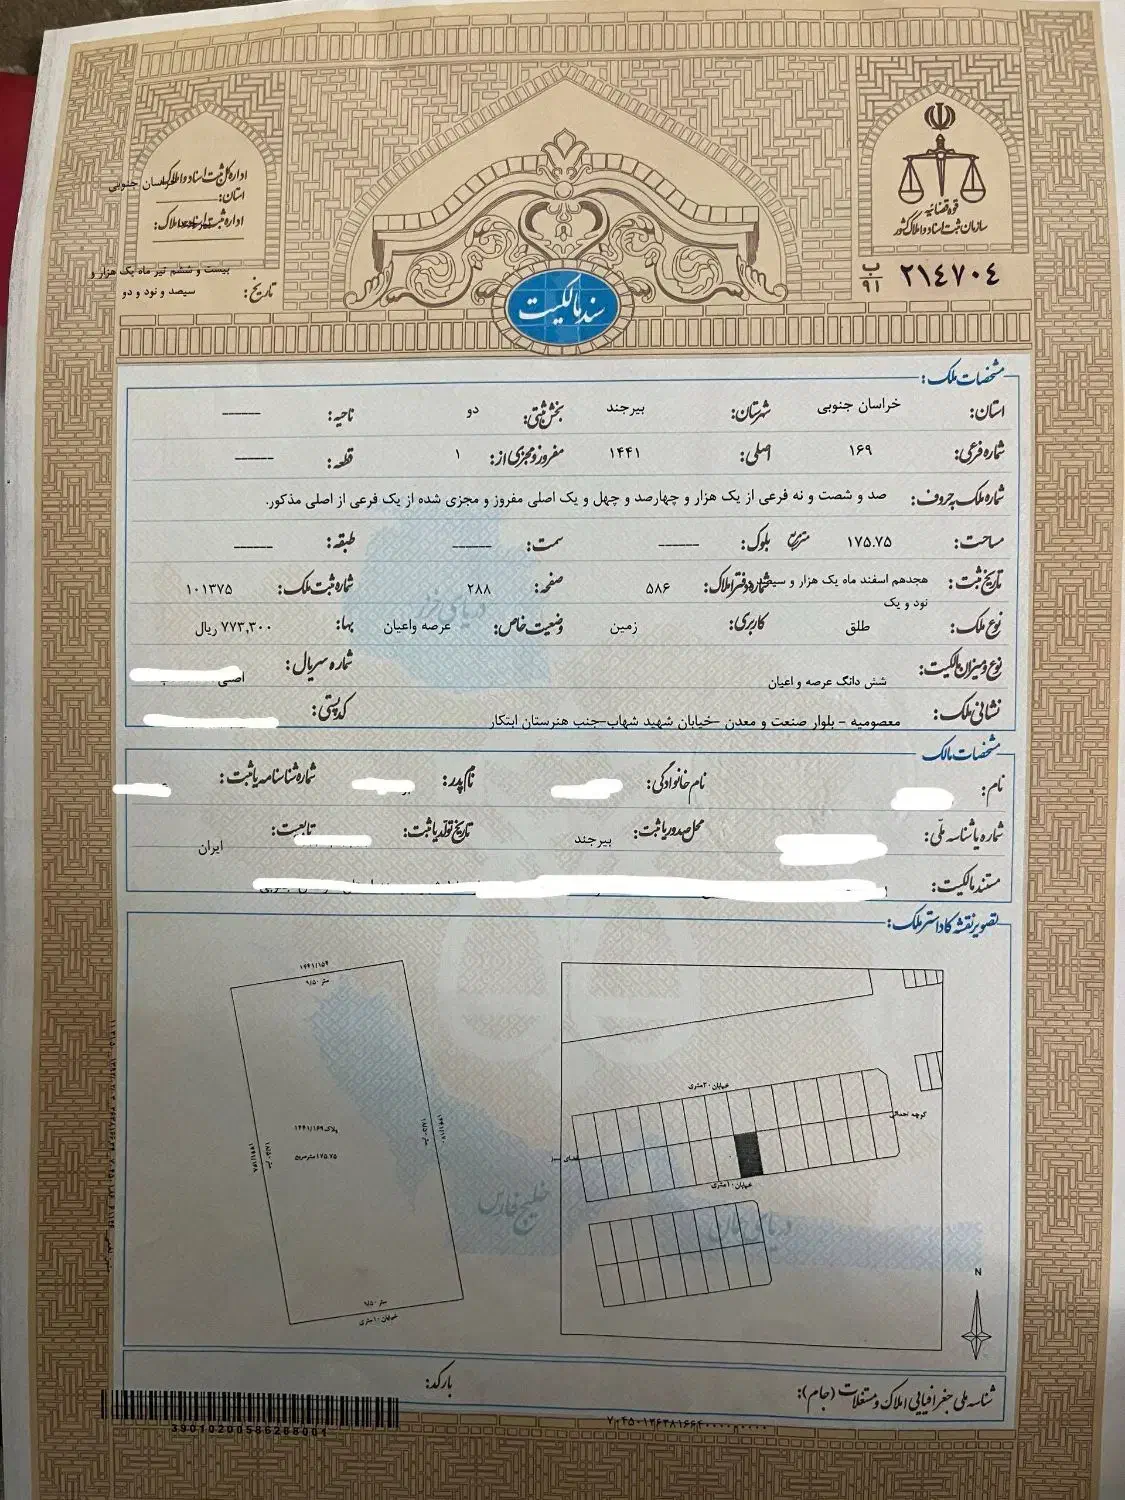 قوه قضائیه
سازمان ثبت اسناد و املاک کشور
۲۱٤۷۰٤ ب ۹۱
اداره کل ثبت اسناد و املاک
استان: خراسان جنوبی
اداره ثبت اسناد و املاک:
تاریخ: بیست و ششم تیر ماه یک هزار و
سیصد و نود و دو
سند مالکیت
مشخصات ملک:
استان: خراسان جنوبی شهرستان: بیرجند بخش ثبتی: دو ناحیه: ------
شماره فرعی: ۱۶۹ اصلی: ۱۴۴۱ مفروز و مجزی از: ۱ قطعه: ------
شماره ملک به حروف: صد و شصت و نه فرعی از یک هزار و چهارصد و چهل و یک اصلی مفروز و مجزی شده از یک فرعی از اصلی مذکور.
مساحت: ۱۷۵.۷۵ مترمربع بلوک: ------ سمت: ------ طبقه: ------
تاریخ ثبت: هجدهم اسفند ماه یک هزار و سیصد شماره دفتر املاک: ۵۸۶ صفحه: ۲۸۸ شماره ثبت ملک: ۱۰۱۳۷۵
نود و یک
نوع ملک: طلق کاربری: زمین وضعیت خاص: عرصه واعیان بها: ۷۷۳,۳۰۰ ریال
نوع و میزان مالکیت: شش دانگ عرصه و اعیان شماره سریال: اصلی
نشانی ملک: معصومیه - بلوار صنعت و معدن -خیابان شهید شهاب-جنب هنرستان ابتکار کد پستی:
مشخصات مالک
نام: نام خانوادگی: نام پدر: شماره شناسنامه یا ثبت:
شماره یا شناسه ملی: محل صدور یا ثبت: بیرجند تاریخ تولد یا ثبت: تابعیت: ایران
مستند مالکیت:
تصویر نقشه کاداستر ملک:
۱۴۴۱/۱۵۴
متر ۹/۵۰
پلاک ۱۴۴۱/۱۶۹
۱۷۵.۷۵ مترمربع
متر ۱۸/۵۰
۱۴۴۱/۱۶۸
متر ۱۸/۵۰
۱۴۴۱/۱۷۰
متر ۹/۵۰
خیابان ۱۰متری
خیابان ۲۰متری
کوچه احداثی
فضای سبز
خیابان ۱۰متری
N
دریای خزر
خلیج فارس
دریای عمان
شناسه ملی جغرافیایی املاک و مستغلات (جام):
بارکد:
39010200586268001